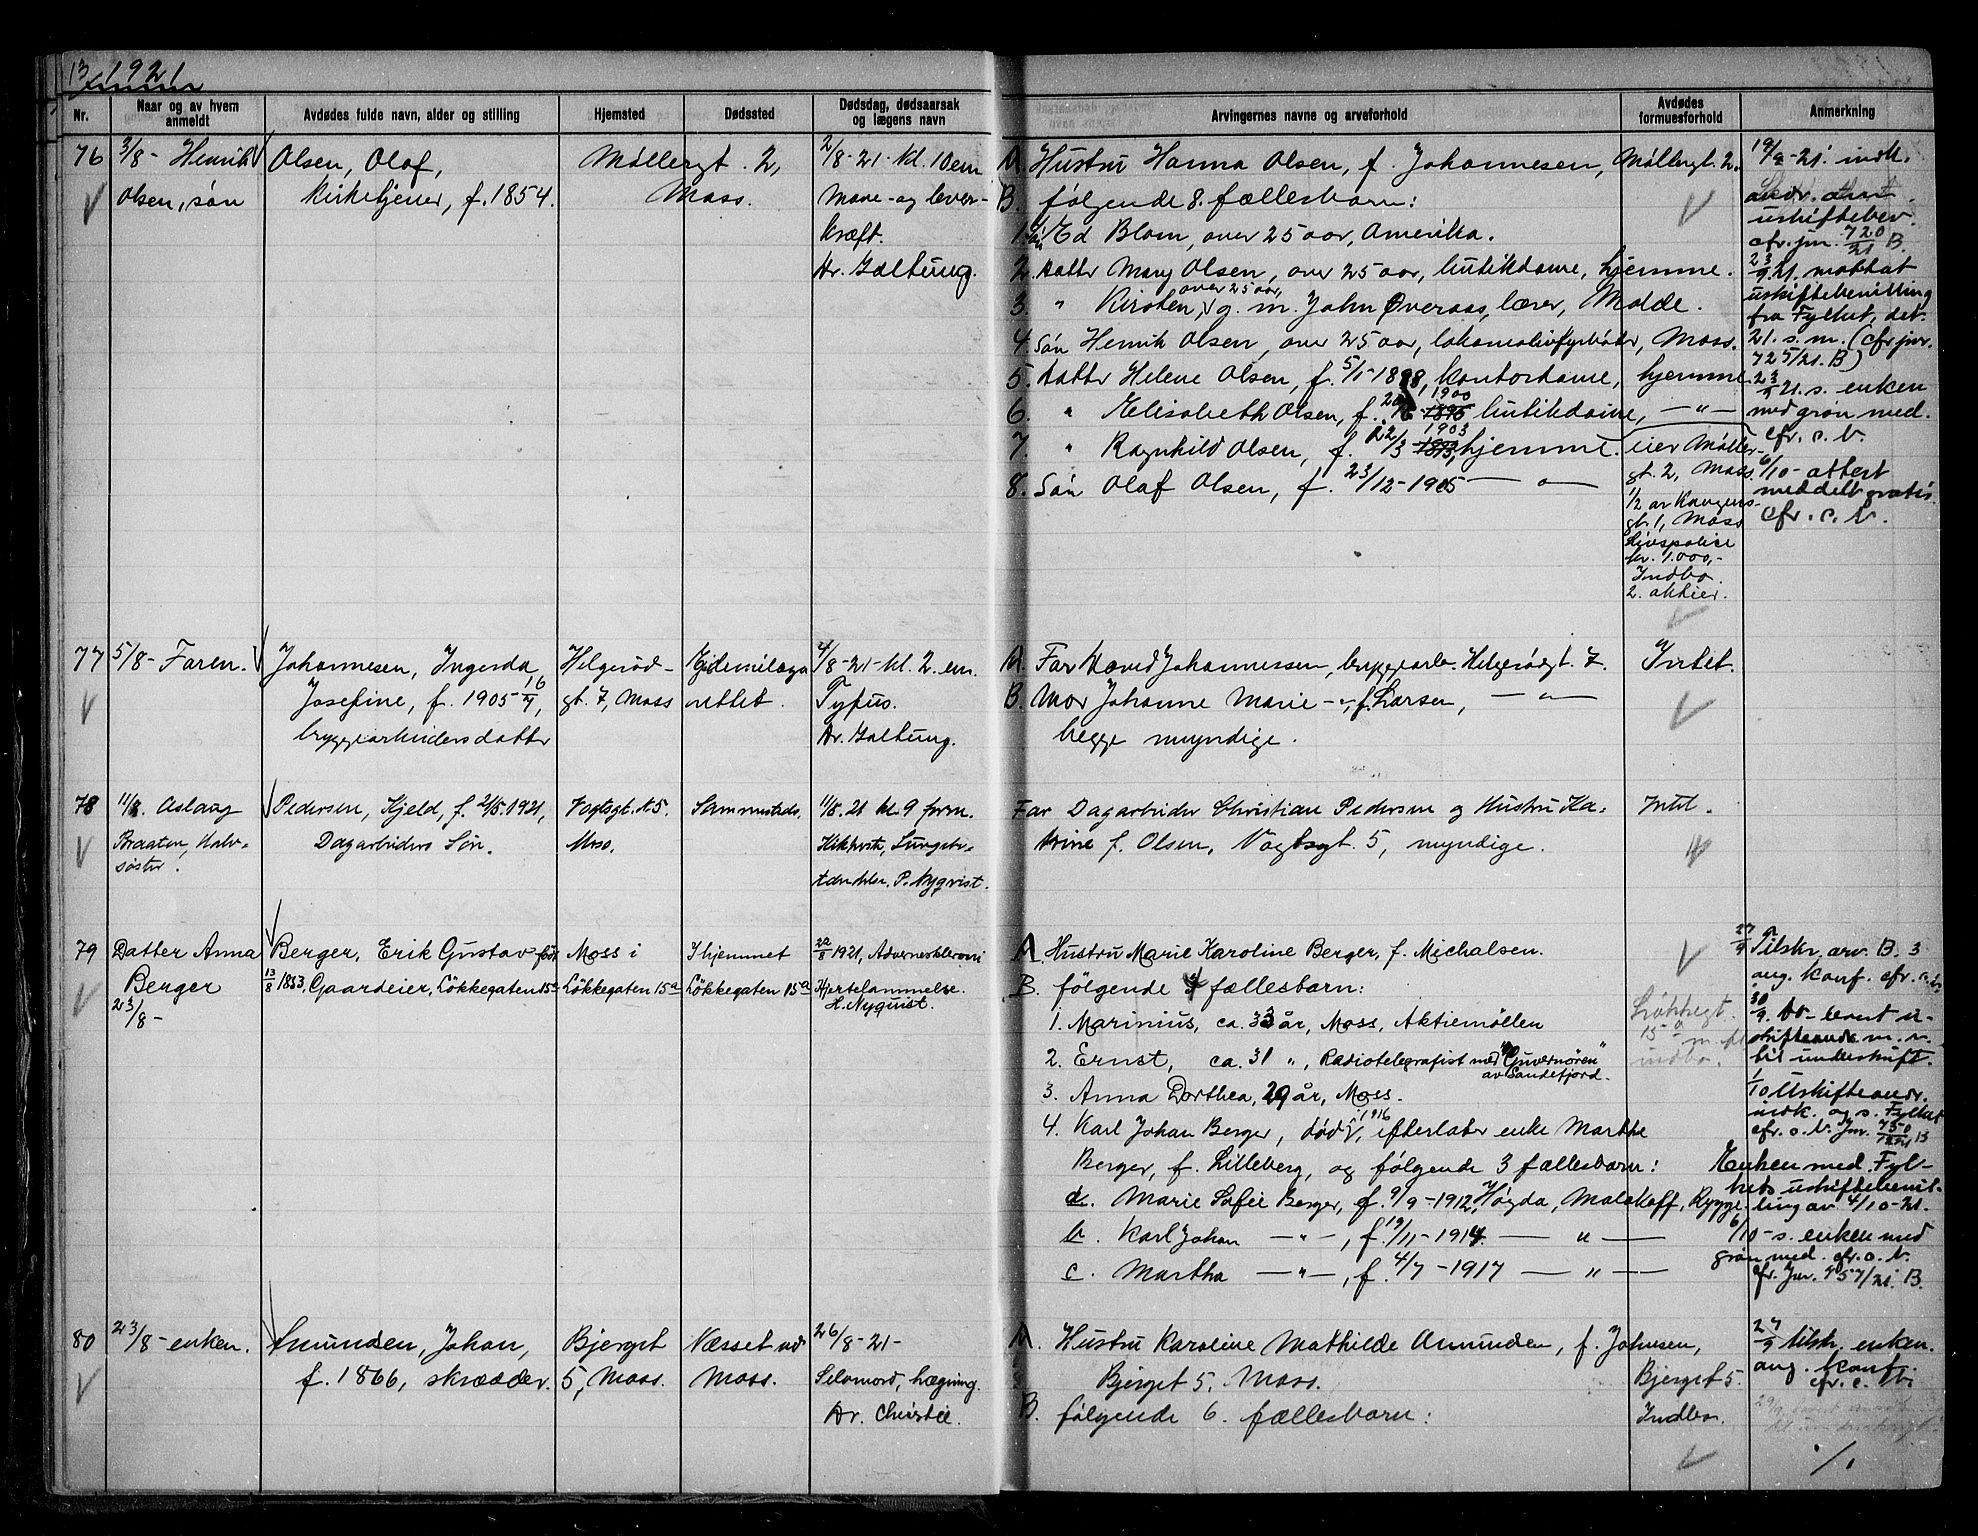 13 1921
Nr.
Naar og av hvem anmeldt
Avdødes fulde navn, alder og stilling
Hjemsted
Dødssted
Dødsdag, dødsaarsak og lægens navn
Arvingernes navne og arveforhold
Avdødes formuesforhold
Anmerkning
76
3/8 - Henrik
Olsen, søn
Olsen, Olaf,
Kirketjener, f. 1854.
Møllergt. 2,
Moss.
2/8-21- kl. 10 em
Mave- og lever-
kræft.
Dr. Galtung.
A. Hustru Hanna Olsen, f. Johannesen, Møllergt. 2.
B. følgende 8. fællesbarn:
1. Søn Ed Blom, over 25 aar, Amerika.
2. Datter Mary Olsen, over 25 aar, butikdame, hjemme.
3. " Kirsten, over 25 aar, g. m. John Øveraas, lærer, Molde.
4. Søn Henrik Olsen, over 25 aar, lokomotivfyrbøter, Moss.
5. Datter Helene Olsen, f. 5/1-1898, kontordame, hjemme.
6. " Elisabeth Olsen, f. 1900 butikdame, -"-
7. " Ragnhild Olsen, f. 22/3 1903 hjemme.
8. Søn Olaf Olsen, f. 23/12-1905 - " -
eier Møller-
gt. 2, Moss
1/2 av Kongens-
gt. 1, Moss
Livspolice
kr. 1.000,-
Indbo.
2. aktier.
19/8-21. indk.
uskiftebev.
cfr. jnr. 720/21 B.
23/9.21. mottat
uskiftebevilling
fra Fylket, dat.
21. s. m. (cfr jnr.
725/21. B)
23/9 21. s. enken
med grøn med.
cfr. c. b.
6/10- attest
meddelt gratis
cfr. c. b.
77
5/8- Faren.
Johannesen, Ingerda
Josefine, f. 1905 16/7,
bryggearbeiders datter
Helgerød-
gt. 7, Moss
Epidemilaza
rettet.
4/8-21- kl. 2. em.
Tyfus.
Dr. Galtung.
A. Far David Johannessen, bryggearb. Helgerødgt. 7.
B. Mor Johanne Marie -"-, f. Larsen, - " -
begge myndige.
Intet.
78
11/8. Aslaug
Braaten, Halv-
søster.
Pedersen, Kjeld, f. 2/5.1921,
Dagarbeiders Søn.
Vogtsgt. 5.
Moss.
Sammesteds.
11/8. 21 kl. 9 form.
Kikhoste, Lungebe-
tændelse. P. Nyqvist.
Far Dagarbeider Christian Pedersen og Hustru Ka-
trine f. Olsen, Vogtsgt. 5, myndige.
Intet.
79
Datter Anna
Berger
23/8-
Berger, Erik Gustav født
13/8 1853, Gaardeier, Løkkegaten 15a
Moss i
Løkkegaten 15a
I hjemmet
Løkkegaten 15a
22/8 1921,
Hjertelammelse.
H. Nyquist.
A. Hustru Marie Karoline Berger, f. Michalsen.
B. følgende 4 fællesbarn:
1. Marinius, ca. 33 år, Moss, Aktiemøllen
2. Ernst, ca. 31 ", Radiotelegrafist med "Guvernøren"
av Sandefjord.
3. Anna Dorthea, 29 år, Moss.
4. Karl Johan Berger, død 1916, efterlater enke Martha
Berger, f. Lilleberg, og følgende 3 fællesbarn:
a. Marie Sofie Berger, f. 9/9-1912, Høgda, Malakoff, Rygge.
b. Karl Johan -"-, f. 19/11-1914. - " -
c. Martha -"-, f. 4/7-1917 - " -
Løkkegt.
15 a
indbo.
27/9 Tilskr. arv. B. 3
ang. konf. cfr. c. b.
30/9. bo- levert u-
skifteandr. m. m.
til underskrift.
1/10 Uskifteandr.
indk. og s. Fylket
cfr. c. b. Jnr. 750/1921 B
Enken med. Fyl-
kets uskiftebevil-
ling av 4/10-21.
6/10-s. enken med
grøn med. cfr. c. b.
cfr. Jnr. 757/21. B.
80
23/8- enken.
Amunden, Johan,
f. 1866, skrædder.
Bjerget
5, Moss.
Næsset ved
Moss.
26/8-21-
Selvmord, hægning.
Dr. Christie.
A. Hustru Karoline Mathilde Amunden, f. Johnsen,
Bjerget 5, Moss.
B. følgende 6. fællesbarn:
Bjerget 5.
Indbo.
27/9 tilskr. enken.
ang. konf.
cfr. c. b.
./.